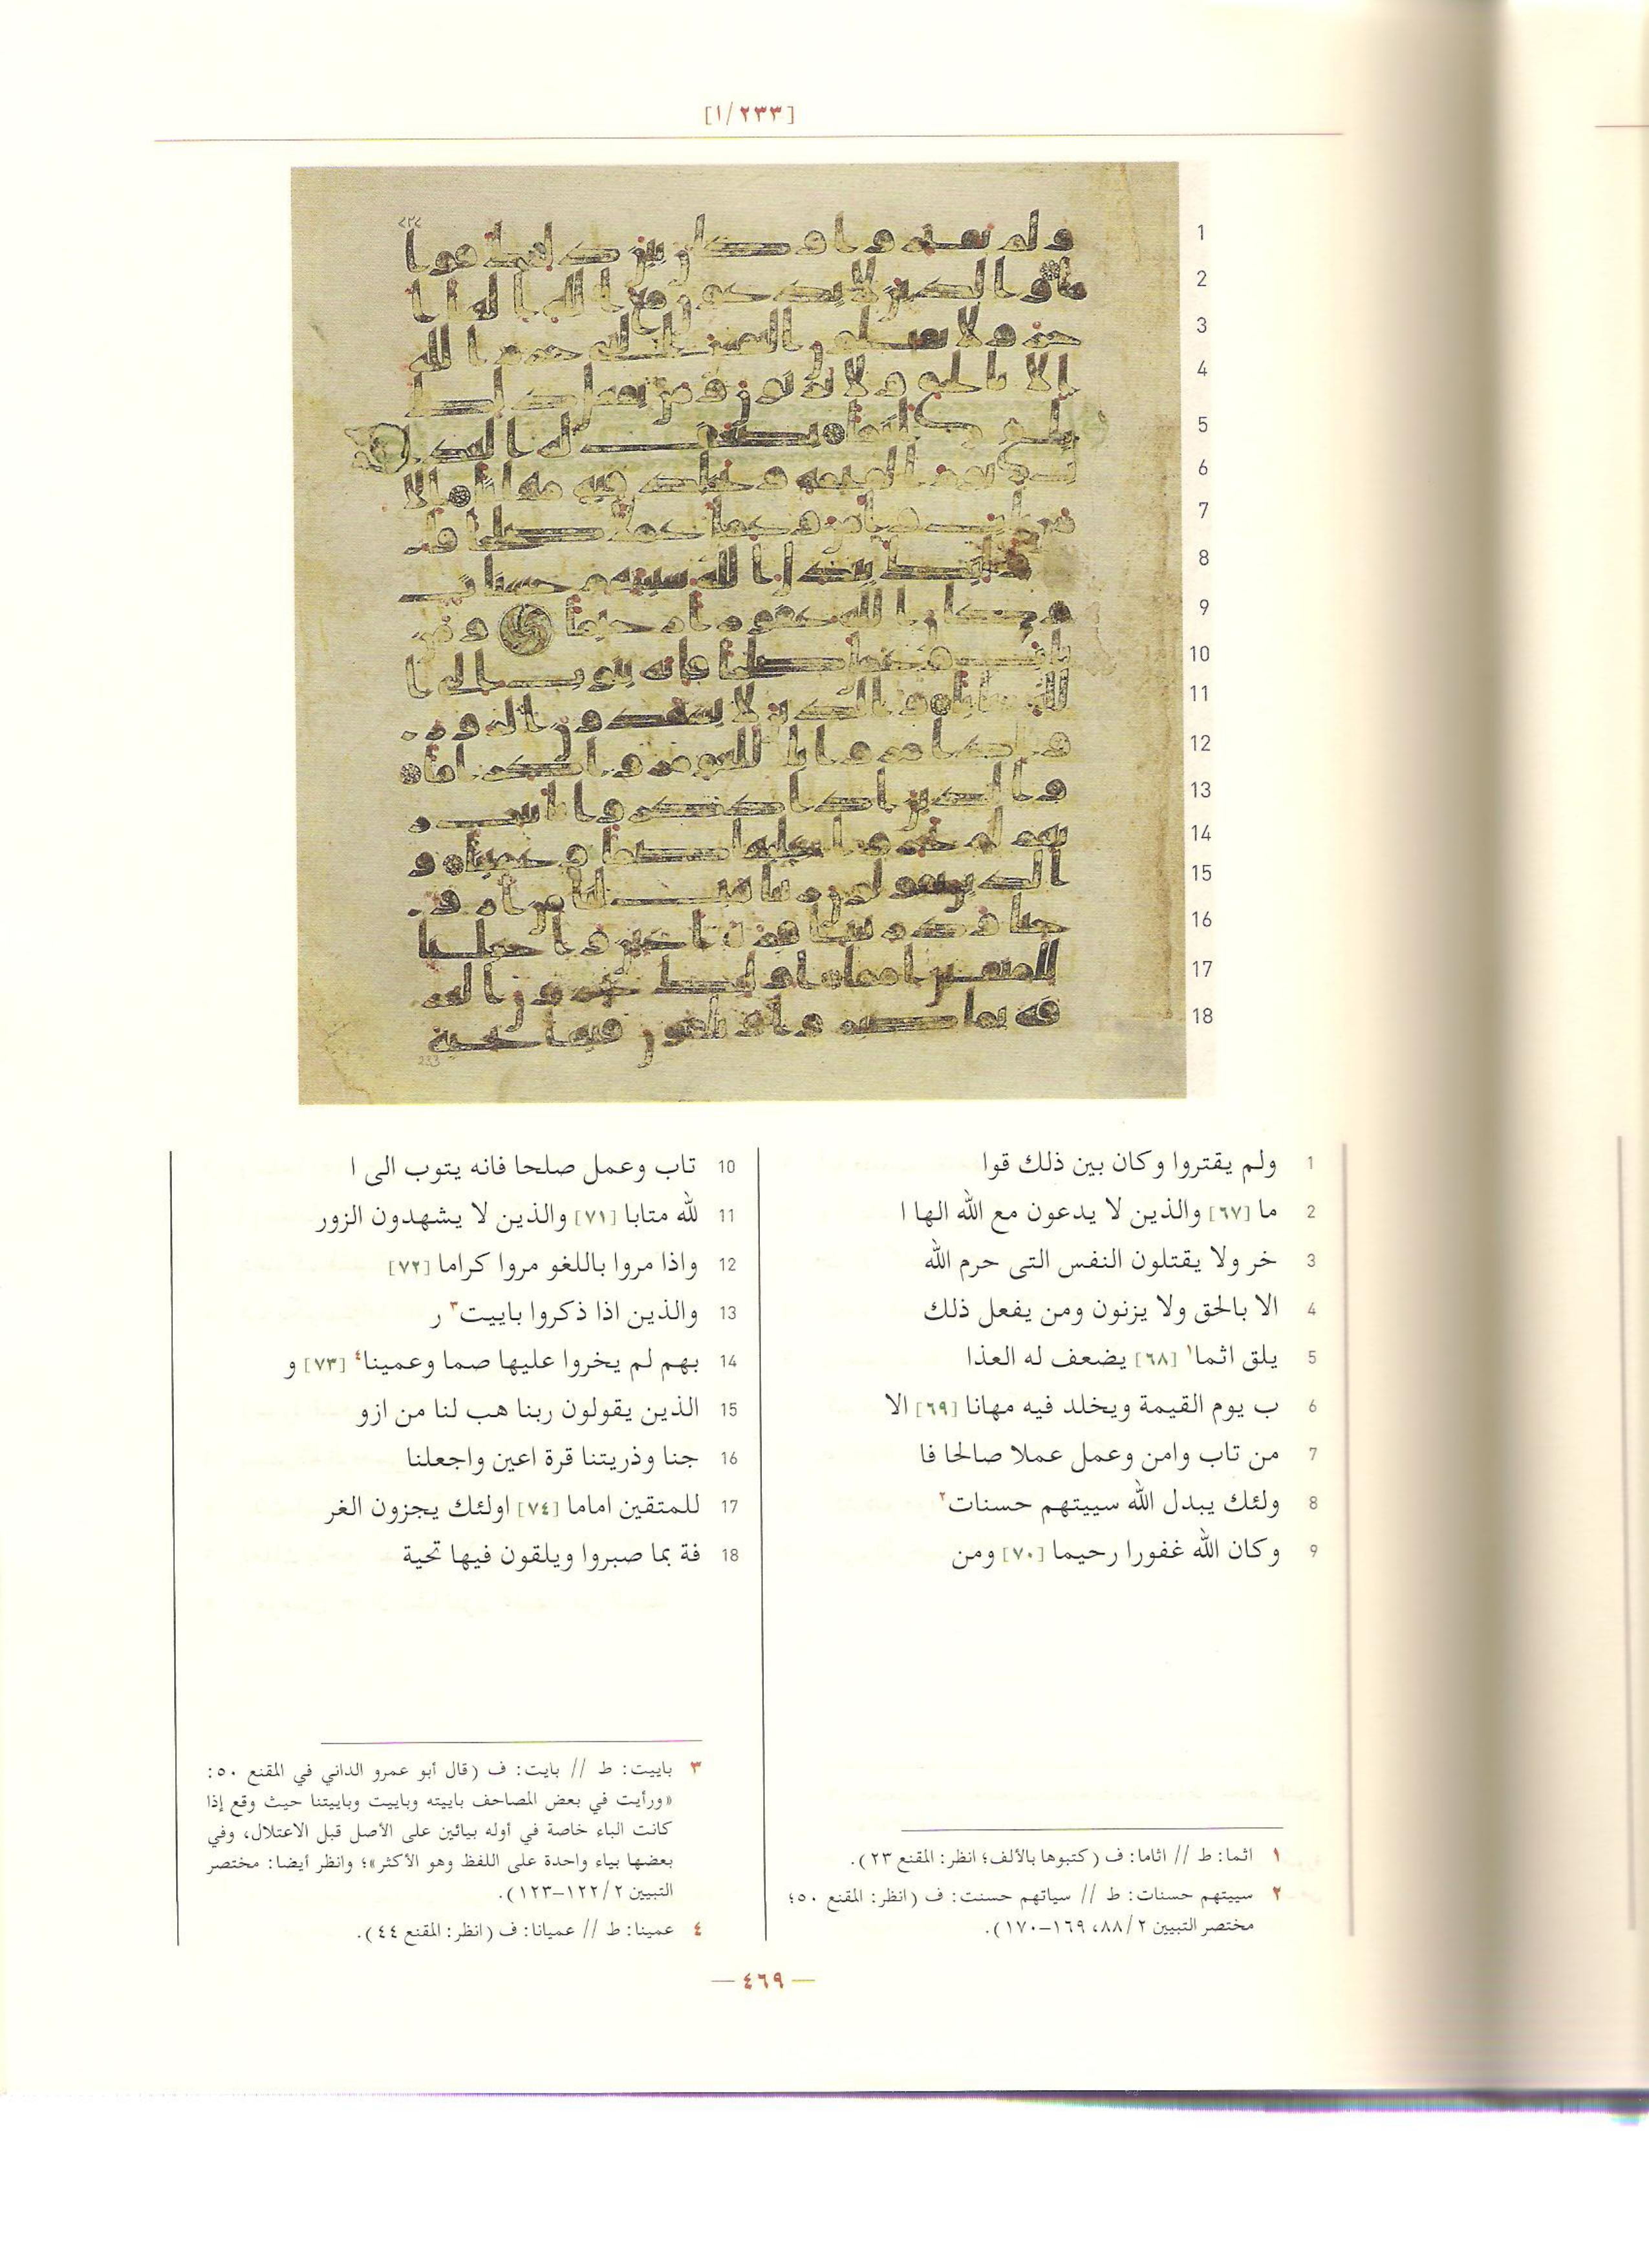 [٢٣٣/١]
1 ولم يقتروا وكان بين ذلك قوا
2 ما [٦٧] والذين لا يدعون مع الله الها ا
3 خر ولا يقتلون النفس التى حرم الله
4 الا بالحق ولا يزنون ومن يفعل ذلك
5 يلق اثما١ [٦٨] يضعف له العذا
6 ب يوم القيمة ويخلد فيه مهانا [٦٩] الا
7 من تاب وامن وعمل عملا صالحا فا
8 ولئك يبدل الله سييتهم حسنات٢
9 وكان الله غفورا رحيما [٧٠] ومن
10 تاب وعمل صلحا فانه يتوب الى ا
11 لله متابا [٧١] والذين لا يشهدون الزور
12 واذا مروا باللغو مروا كراما [٧٢]
13 والذين اذا ذكروا باييت٣ ر
14 بهم لم يخروا عليها صما وعمينا٤ [٧٣] و
15 الذين يقولون ربنا هب لنا من ازو
16 جنا وذريتنا قرة اعين واجعلنا
17 للمتقين اماما [٧٤] اولئك يجزون الغر
18 فة بما صبروا ويلقون فيها تحية
١ اثما: ط // اثاما: ف (كتبوها بالألف؛ انظر: المقنع ٢٣).
٢ سييتهم حسنات: ط // سياتهم حسنت: ف (انظر: المقنع ٥٠؛
مختصر التبيين ٨٨/٢، ١٦٩–١٧٠).
٣ باييت: ط // بايت: ف (قال أبو عمرو الداني في المقنع ٥٠:
«ورأيت في بعض المصاحف باييته وباييت وباييتنا حيث وقع إذا
كانت الباء خاصة في أوله بيائين على الأصل قبل الاعتلال، وفي
بعضها بياء واحدة على اللفظ وهو الأكثر»؛ وانظر أيضا: مختصر
التبيين ١٢٢/٢–١٢٣).
٤ عمينا: ط // عميانا: ف (انظر: المقنع ٤٤).
— ٤٦٩ —